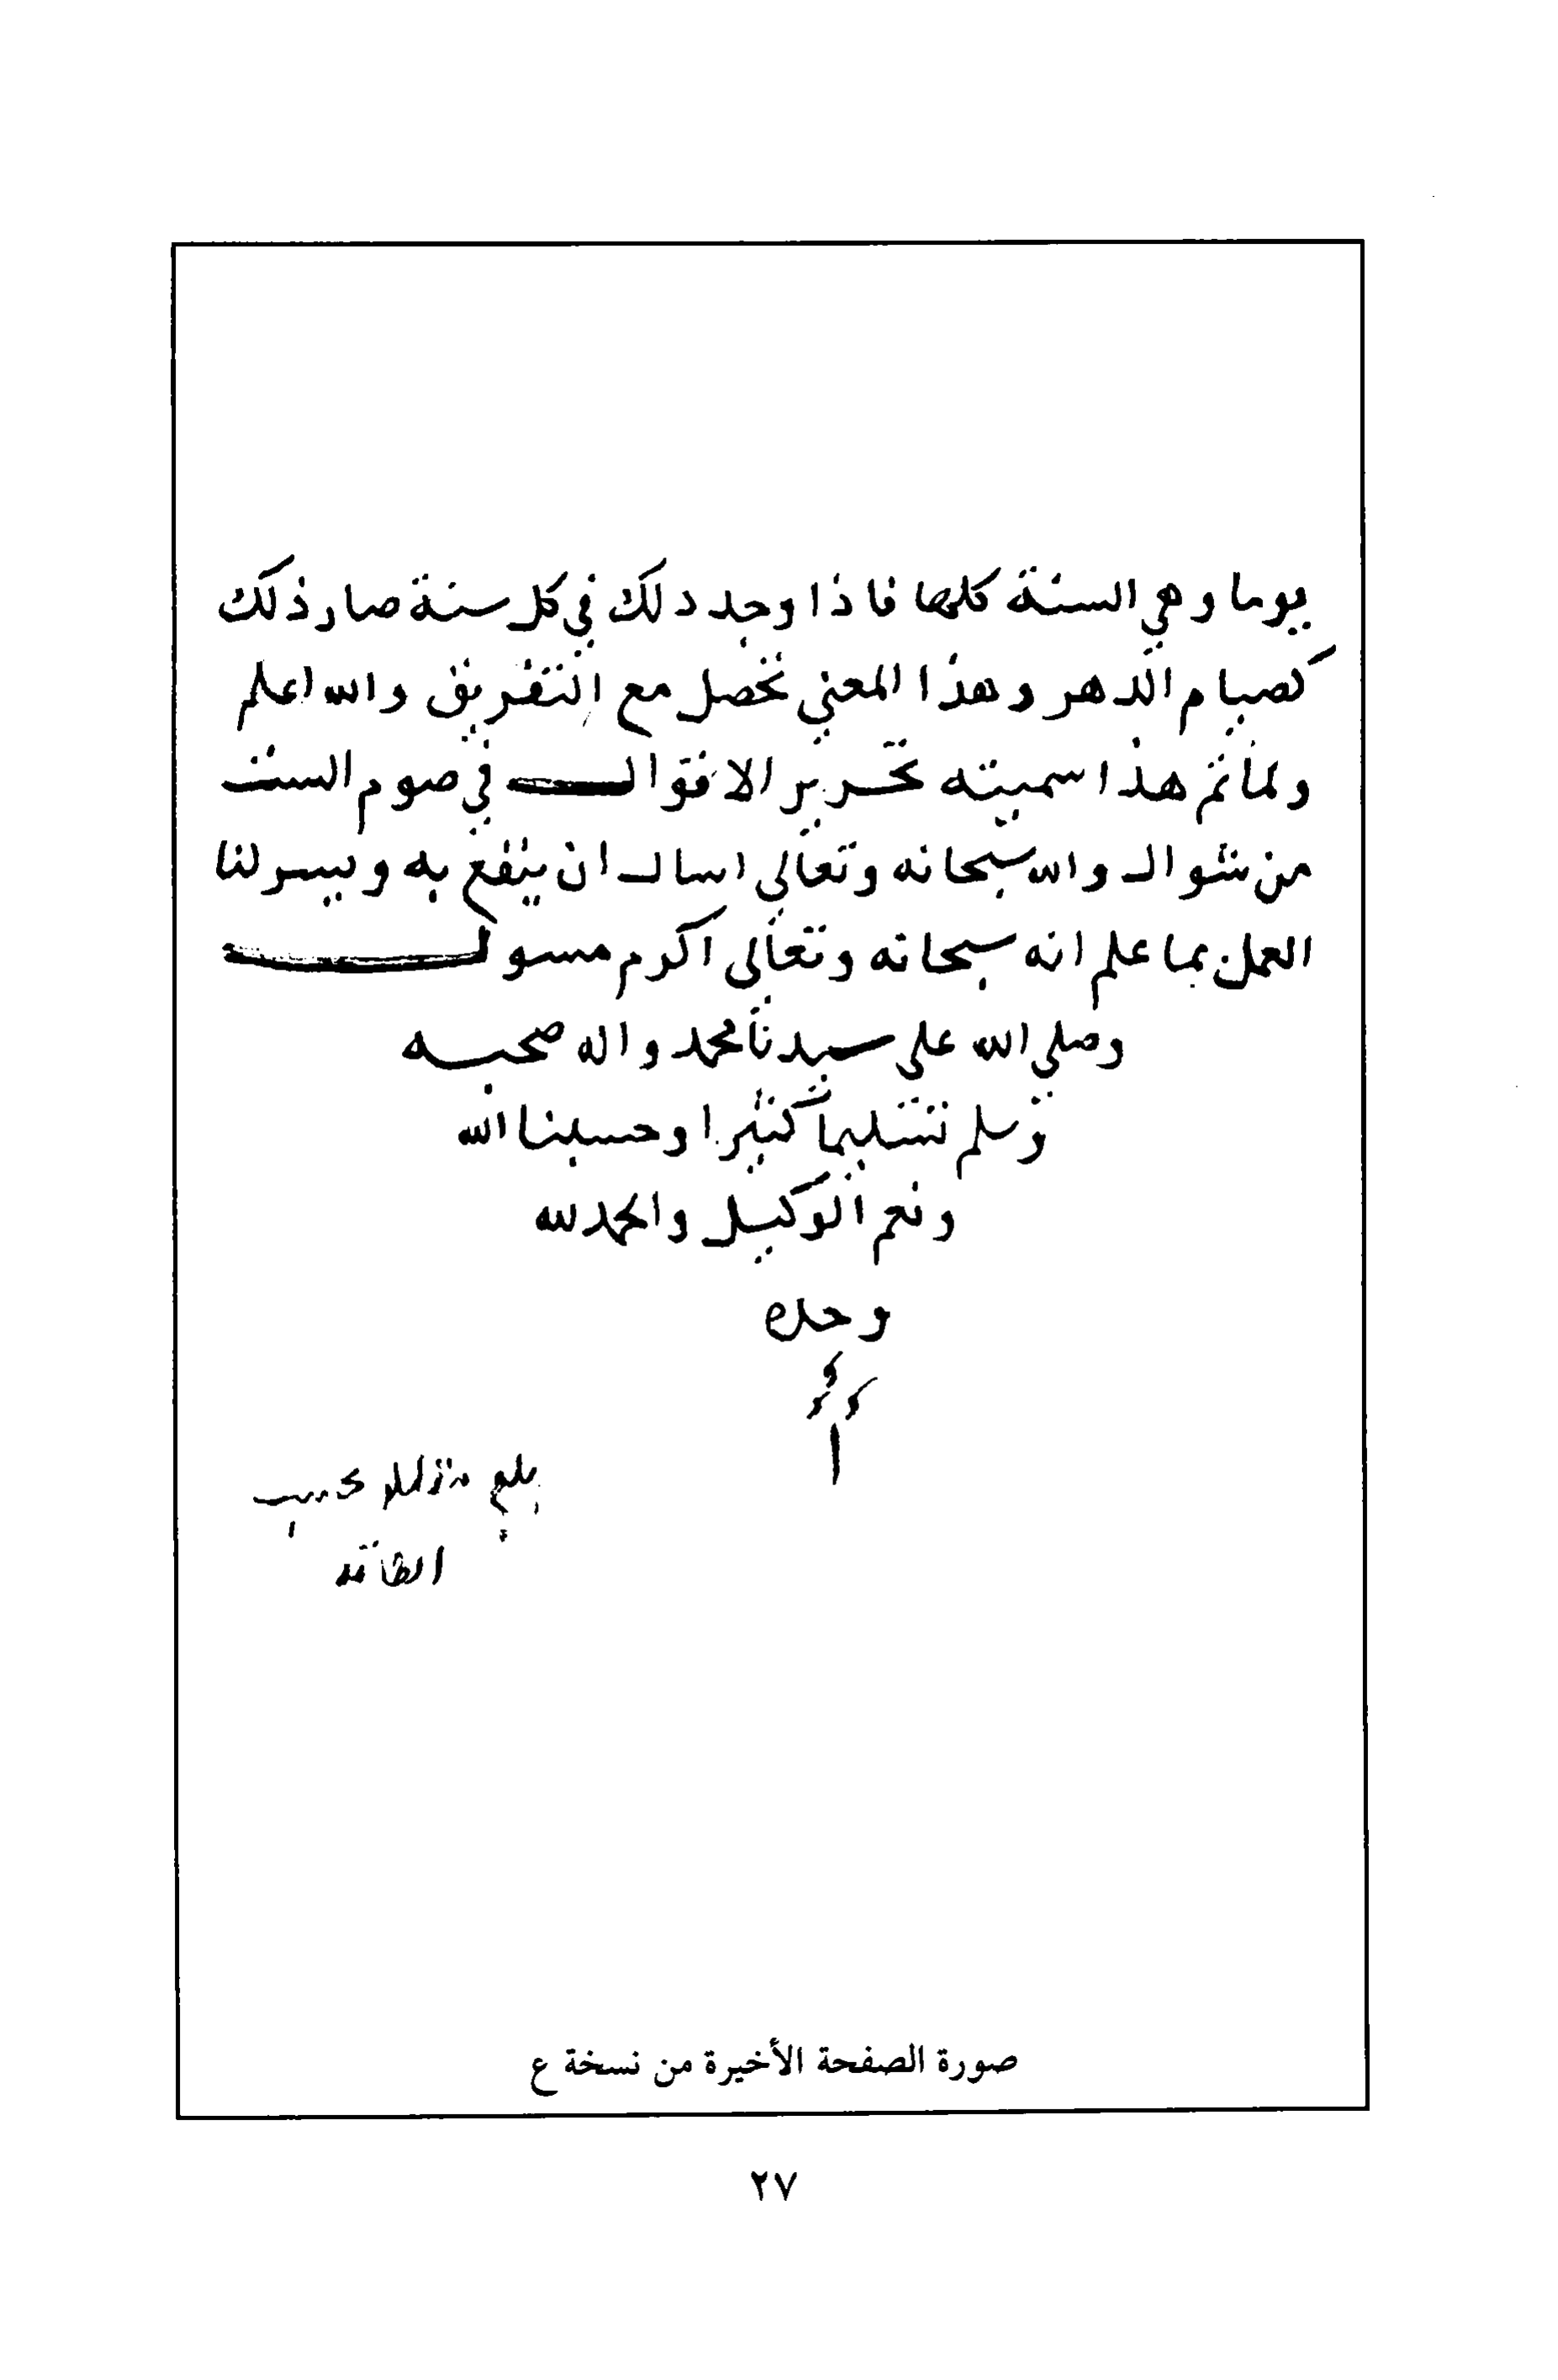 يوما وهي السنة كلها فاذا وجد دلك في كل سنة صار ذلك
كصيام الدهر وهذا المعني تحصل مع التفريق والله اعلم
ولما تم هذا سميته تحرير الاقوال في صوم الست
من شوال والله سبحانه وتعالى اسال ان ينفع به وييسر لنا
العمل بما علم انه سبحانه وتعالى اكرم مسول
وصلى الله على سيدنا محمد واله صحبه
وسلم تسليما كثيرا وحسبنا الله
ونعم الوكيل والحمد لله
وحده
بلغ حسب
الطاقة
صورة الصفحة الأخيرة من نسخة ع
٢٧